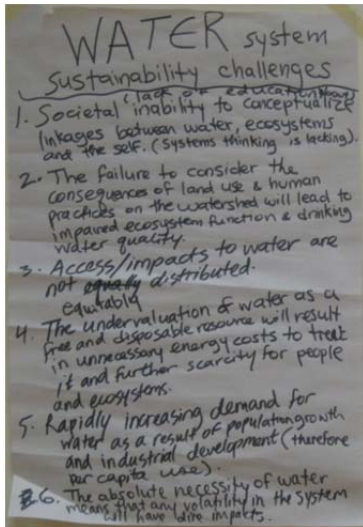 WATER system
sustainability challenges
(lack of education
1. Societal inability to conceptualize
linkages between water, ecosystems
and the self. (Systems thinking is lacking).
2. The failure to consider the
consequences of land use & human
practices on the watershed will lead to
impaired ecosystem function & drinking
water quality.
3. Access/impacts to water are
not equally distributed.
equitably
4. The undervaluation of water as a
free and disposable resource will result
in unnecessary energy costs to treat
it and further scarcity for people
and ecosystems.
5. Rapidly increasing demand for
water as a result of population growth
and industrial development (therefore
per capita use).
6. The absolute necessity of water
means that any volatility in the system
will have dire impacts.